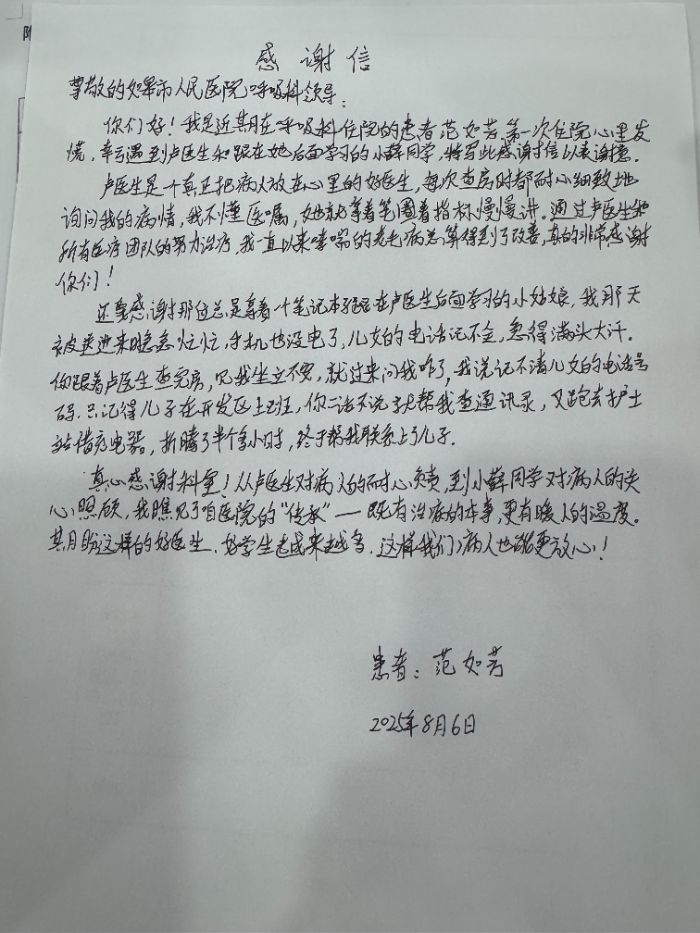 感谢信
尊敬的如皋市人民医院呼吸科领导:
你们好!我是近期在呼吸科住院的患者范如芳,第一次住院心里发
慌,幸亏遇到卢医生和跟在她后面学习的小薛同学,特写此感谢信以表谢意。
卢医生是个真正把病人放在心里的好医生,每次查房时都耐心细致地
询问我的病情,我不懂医嘱,她就拿着笔圈着指标慢慢讲。通过卢医生和
所有医疗团队的努力治疗,我一直以来哮喘的老毛病总算得到了改善,真的非常感谢
你们!
还要感谢那位总是拿着个笔记本跟在卢医生后面学习的小姑娘,我那天
被送进来时急急忙忙,手机也没电了,儿女的电话记不全,急得满头大汗。
你跟着卢医生查完房,见我坐立不安,就过来问我咋了,我说记不清儿女的电话号
码,只记得儿子在开发区上班,你二话不说就帮我查通讯录,又跑去护士
站借充电器,折腾了半个多小时,终于帮我联系上了儿子。
真心感谢科室!从卢医生对病人的耐心负责,到小薛同学对病人的关
心照顾,我瞧见了咱医院的“传承”—既有治病的本事,更有暖人的温度。
期盼这样的好医生、好学生越来越多,这样我们病人也能更放心!
患者:范如芳
2025年8月6日